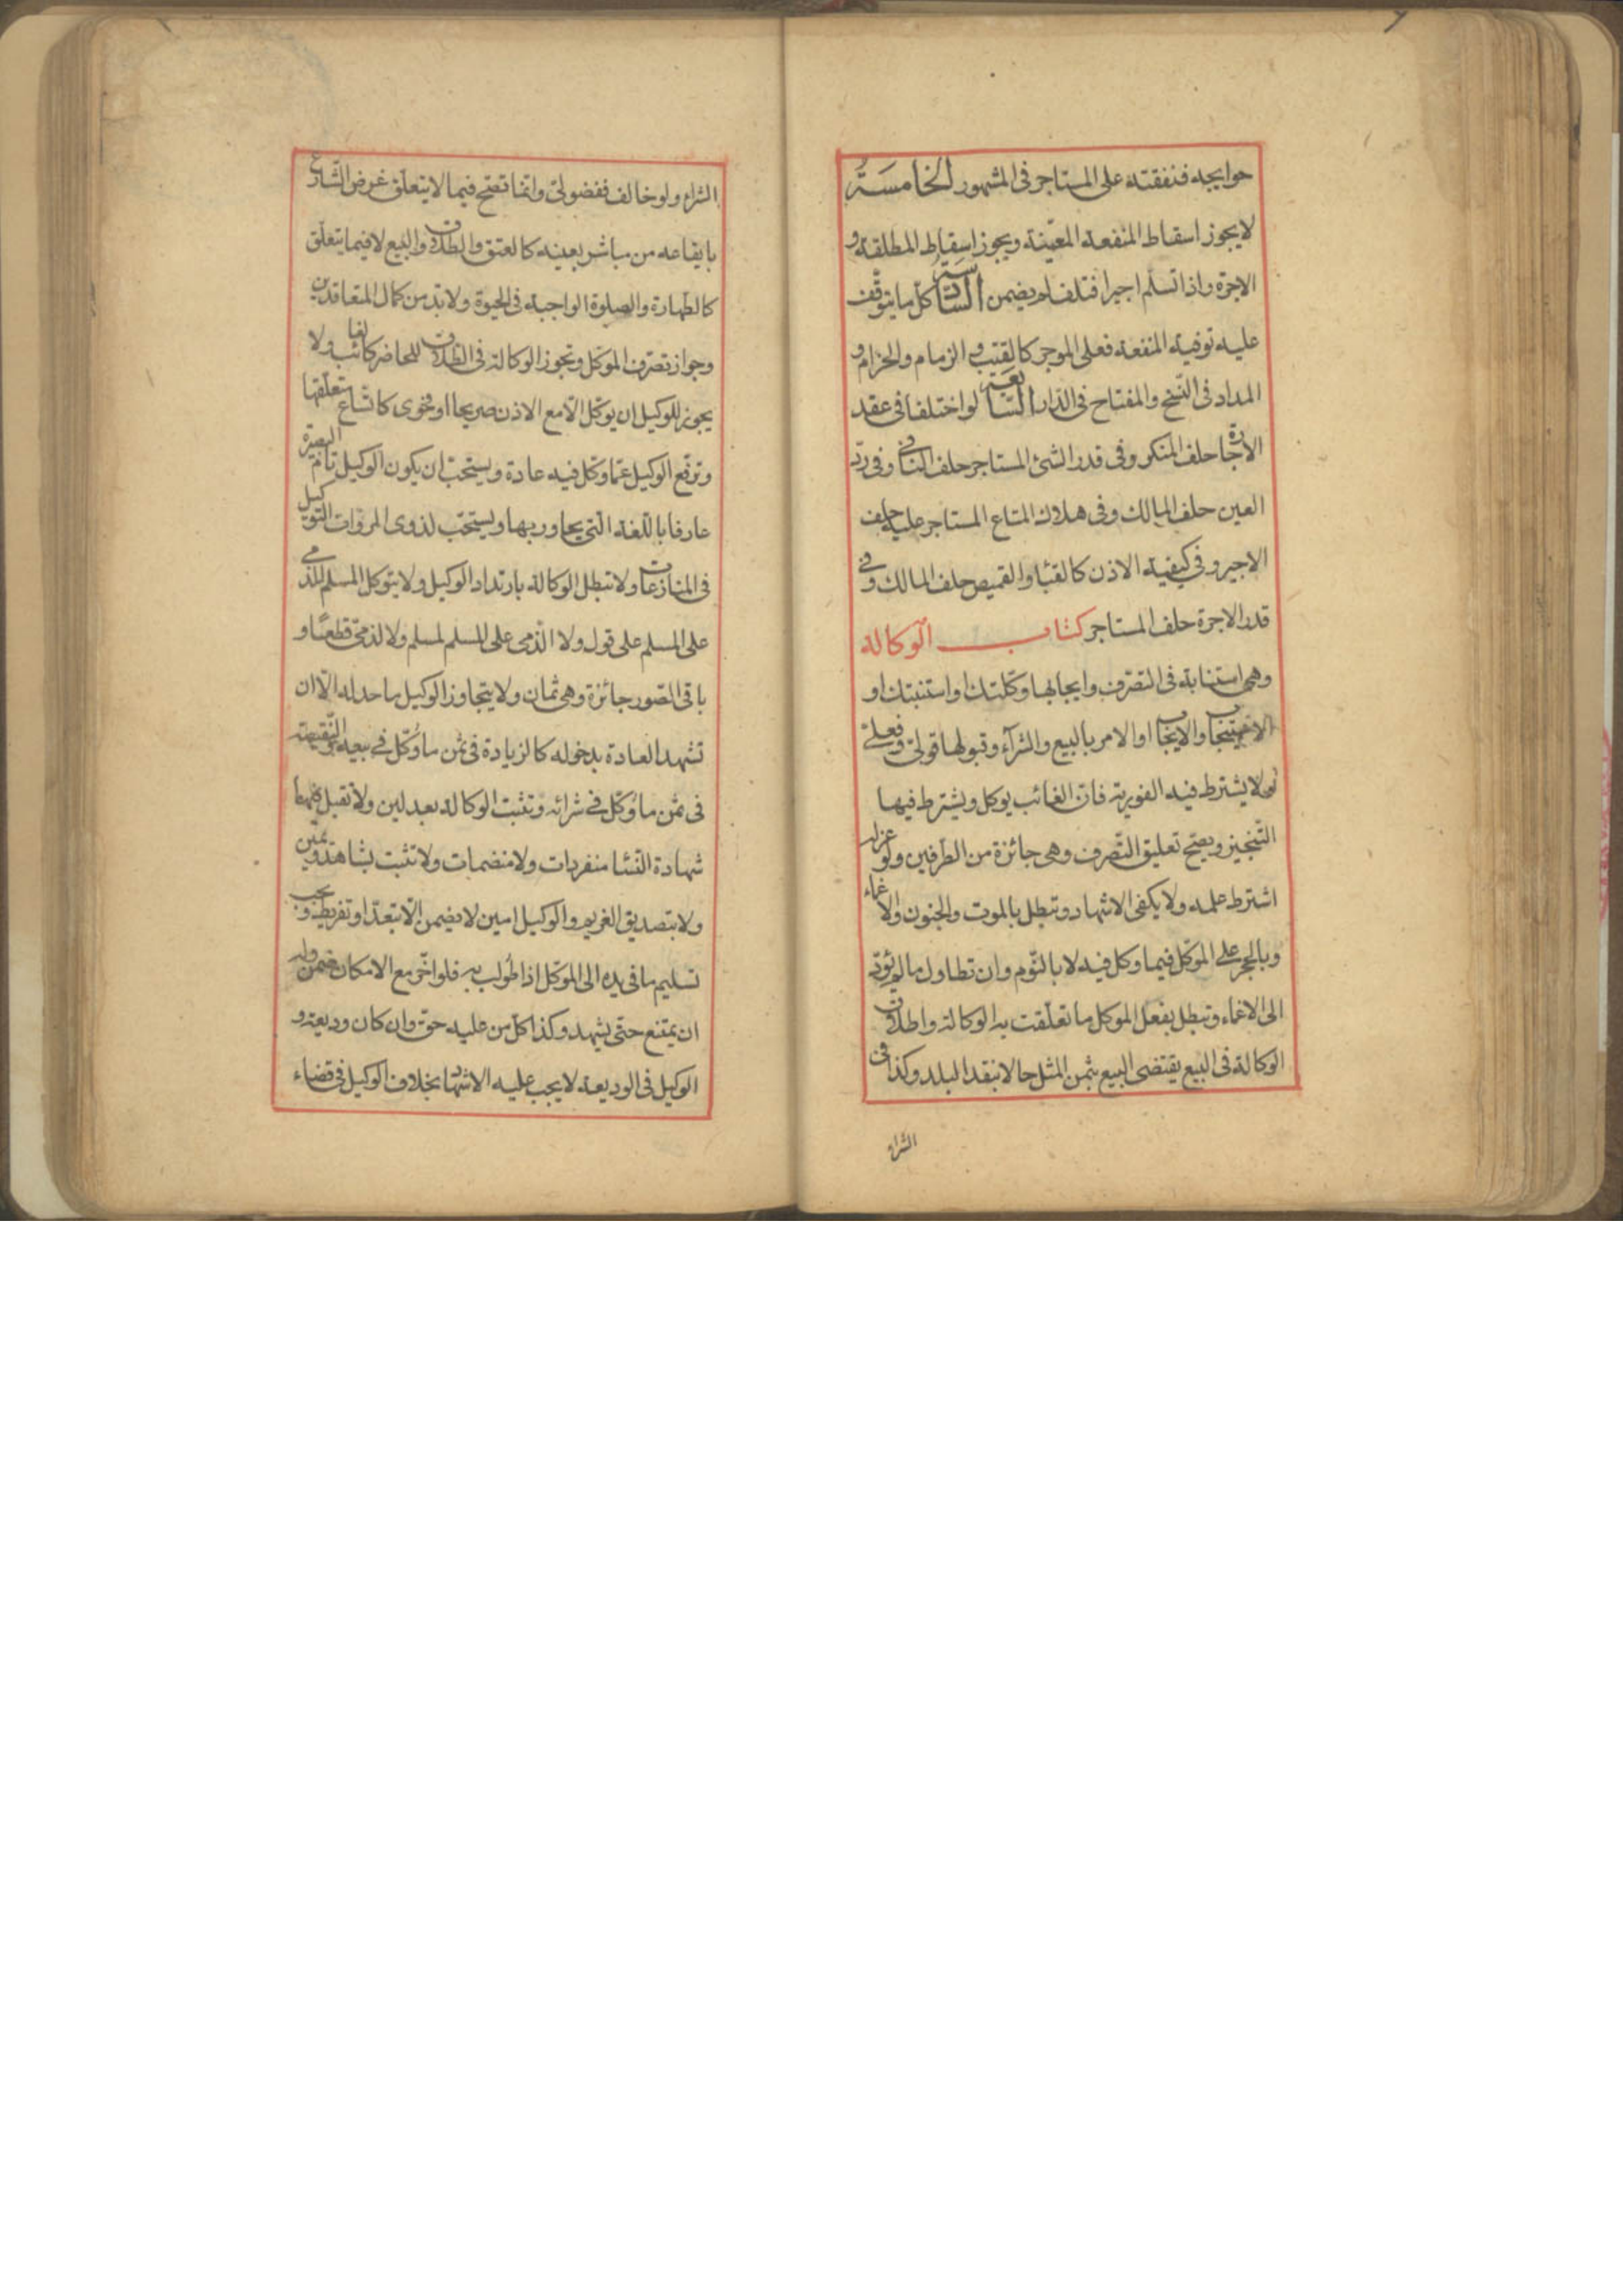 حوايجه فنفقته على المستاجر فى المشهور الخامسة
لا يجوز اسقاط المنفعة المعينة ويجوز اسقاط المطلقة و
الاجرة واذا تسلم اجيرا فتلف لم يضمن السادسة كل ما يتوقف
عليه توفية المنفعة فعلى الموجر كالقتب و الزمام والحزام و
المداد فى النسخ والمفتاح فى الدار السابعة لو اختلفا فى عقد
الاجارة حلف المنكر وفى قدر الشئ المستاجر حلف النافى وفى رد
العين حلف المالك وفى هلاك المتاع المستاجر عليه حلف
الاجير وفى كيفية الاذن كالقبا والقميص حلف المالك وفى
قدر الاجرة حلف المستاجر كتاب الوكالة
وهى استنابة فى التصرف وايجابها وكلتك او استنبتك او
الاستيجاب والايجاب او الامر بالبيع والشرآء وقبولها قولى وفعلى
ولا يشترط فيه الفورية فان الغائب يوكل ويشترط فيها
التنجيز ويصح تعليق التصرف وهى جائزة من الطرفين ولو عزله
اشترط علمه ولا يكفى الاشهاد وتبطل بالموت والجنون والاغماء
وبالحجر على الموكل فيما وكل فيه لا بالنوم وان تطاول ما لم يؤد
الى الاغماء وتبطل بفعل الموكل ما تعلقت به الوكالة واطلاق
الوكالة فى البيع يقتضى البيع بثمن المثل حالا بنقد البلد وكذا فى
الشراء
الشراء ولو خالف ففضولى وانما تصح فيما لا يتعلق غرض الشارع
بايقاعه من مباشر بعينه كالعتق والطلاق والبيع لا فيما يتعلق
كالطهارة والصلوة الواجبة فى الحيوة ولا بد من كمال المتعاقدين
وجواز تصرف الموكل وتجوز الوكالة فى الطلاق للحاضر كالغائب ولا
يجوز للوكيل ان يوكل الا مع الاذن صريحا او فحوى كاتساع متعلقها
وترفع الوكيل عما وكل فيه عادة ويستحب ان يكون الوكيل تام البصيرة
عارفا باللغة التى يحاور بها ويستحب لذوى المروات التوكيل
فى المنازعات ولا تبطل الوكالة بارتداد الوكيل ولا يتوكل المسلم للذمى
على المسلم على قول ولا الذمى على المسلم لمسلم ولا لذمى قطعا و
باقى الصور جائزة وهى ثمان ولا يتجاوز الوكيل ما حد له الا ان
تشهد العادة بدخوله كالزيادة فى ثمن ما وكل فى بيعه والنقيصة
فى ثمن ما وكل فى شرائه وتثبت الوكالة بعدلين ولا تقبل فيها
شهادة النسا منفردات ولا منضمات ولا تثبت بشاهد ويمين
ولا بتصديق الغريم والوكيل امين لا يضمن الا بتعد او تفريط ويجب
تسليم ما فى يده الى الموكل اذا طولب به فلو اخر مع الامكان ضمن وله
ان يمتنع حتى يشهد وكذا كل من عليه حق وان كان وديعة و
الوكيل فى الوديعة لا يجب عليه الاشهاد بخلاف الوكيل فى قضاء